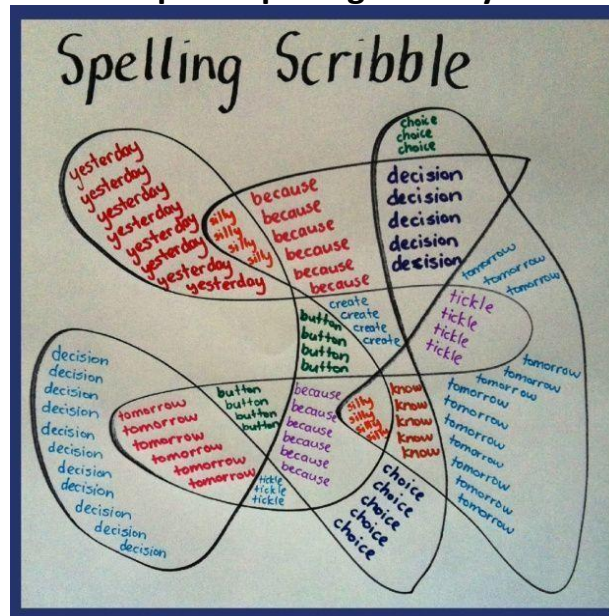 Spelling Scribble
choice
choice
choice
yesterday
yesterday
yesterday
yesterday
yesterday
yesterday
yesterday
yesterday
silly
silly
silly
silly
because
because
because
because
because
because
decision
decision
decision
decision
decision
tomorrow
tomorrow
tomorrow
create
create
create
create
tickle
tickle
tickle
tickle
button
button
button
button
decision
decision
decision
decision
decision
decision
decision
decision
decision
decision
tomorrow
tomorrow
tomorrow
tomorrow
tomorrow
button
button
button
button
because
because
because
because
because
because
silly
silly
silly
silly
know
know
know
know
know
tomorrow
tomorrow
tomorrow
tomorrow
tomorrow
tomorrow
tomorrow
tomorrow
tomorrow
tomorrow
tickle
tickle
tickle
choice
choice
choice
choice
choice